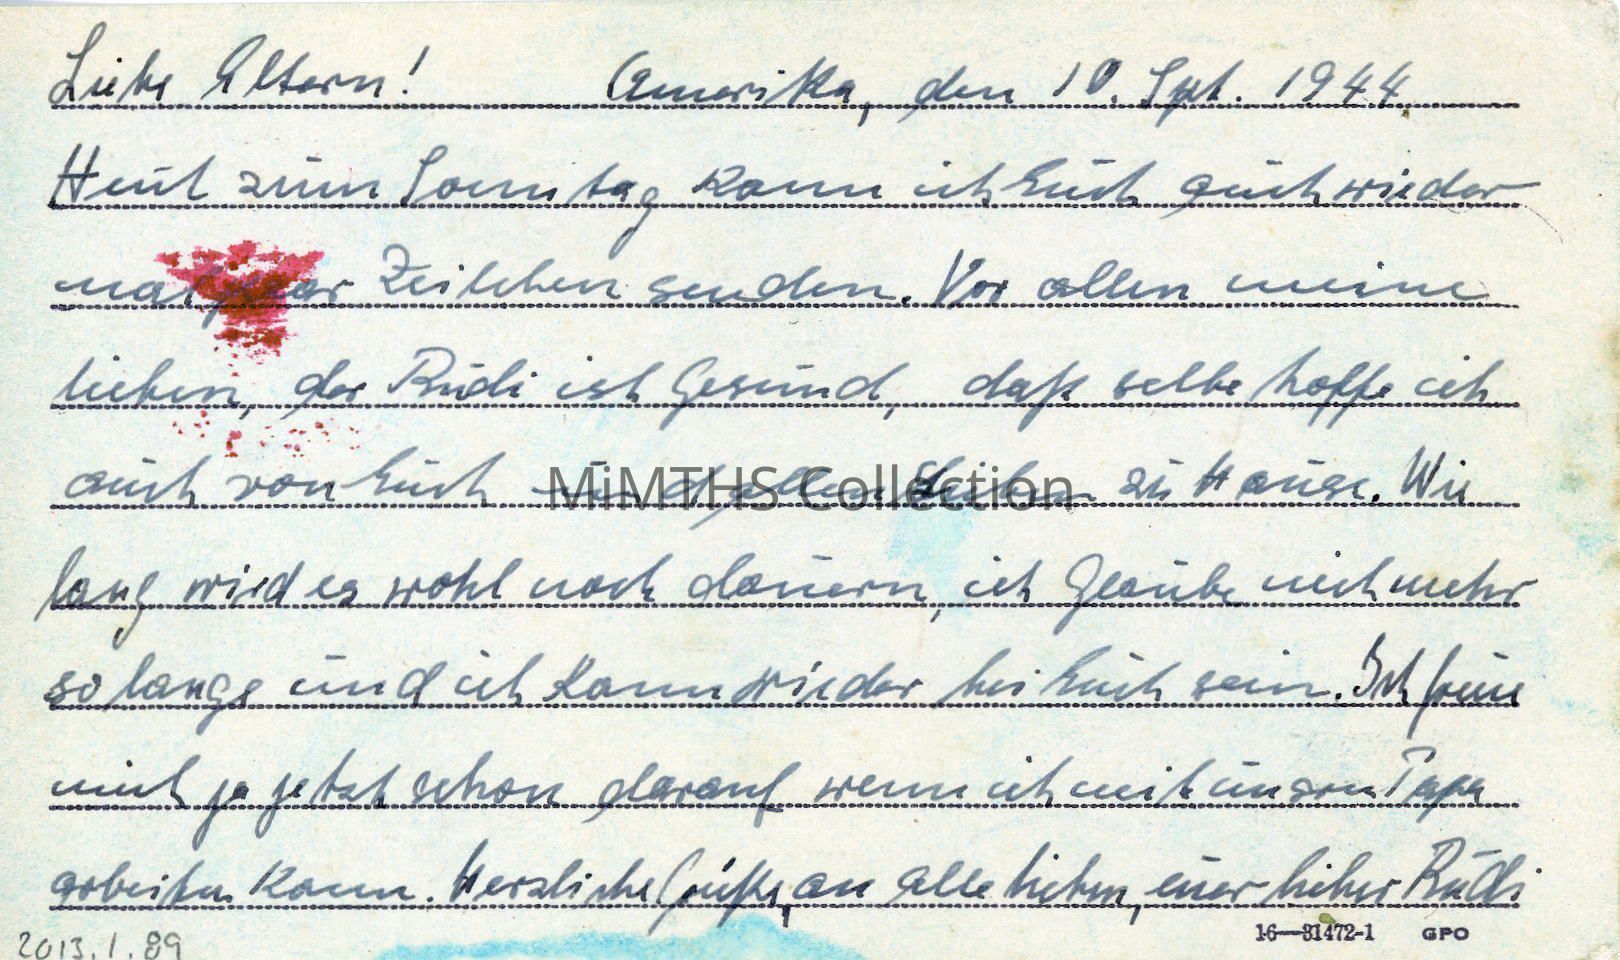 Liebe Eltern! Amerika, den 10. Spt. 1944.
Heut zum Sonntag kann ich Euch auch wieder
mal paar Zeilchen senden. Vor allen meine
lieben, der Rudi ist Gesund, daß selbe hoffe ich
auch von Euch und allen Lieben zu Hause. Wie
lang wird es wohl noch dauern, ich Glaube nich mehr
so lange und ich kann wieder bei Euch sein. Ich freue
mich ja jetzt schon darauf wenn ich mit unsern Papa
arbeiten kann. Herzliche Grüße, an alle lieben, euer lieber Rudi
MiMTHS Collection
2013.1.89
16—31472-1 GPO